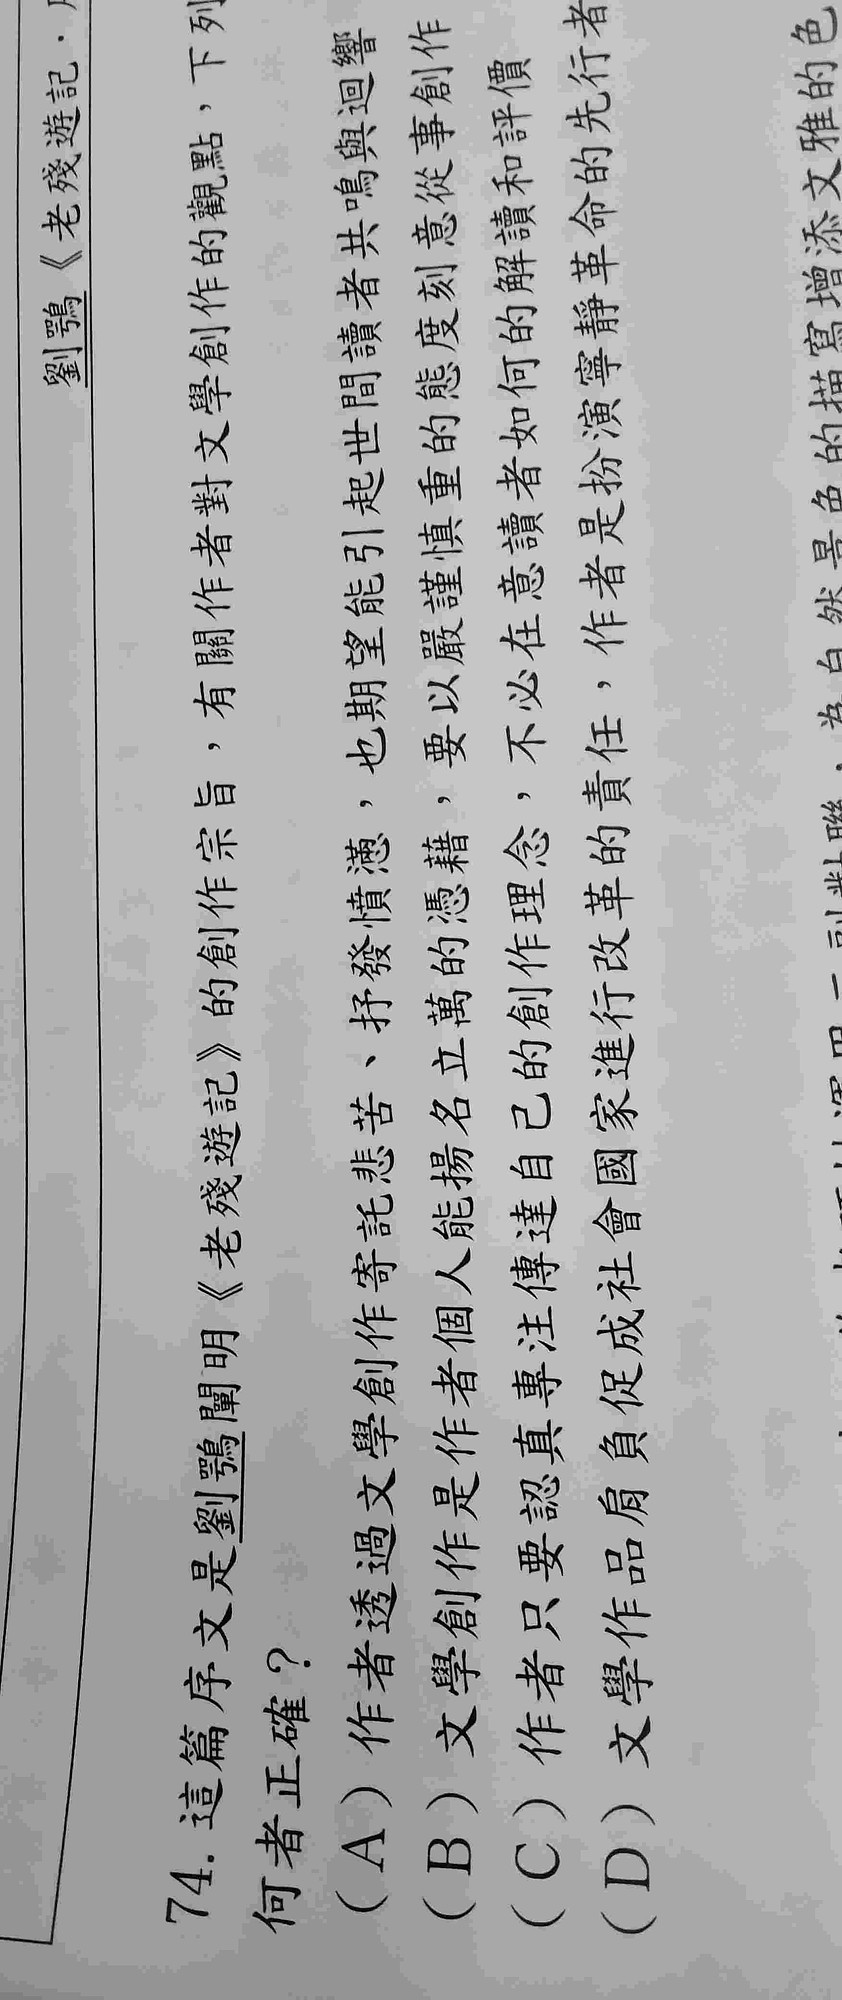 劉鶚《老殘遊記．
74.這篇序文是劉鶚闡明《老殘遊記》的創作宗旨，有關作者對文學創作的觀點，下列
何者正確？
（A）作者透過文學創作寄託悲苦、抒發憤懣，也期望能引起世間讀者共鳴與迴響
（B）文學創作是作者個人能揚名立萬的憑藉，要以嚴謹慎重的態度刻意從事創作
（C）作者只要認真專注傳達自己的創作理念，不必在意讀者如何的解讀和評價
（D）文學作品肩負促成社會國家進行改革的責任，作者是扮演寧靜革命的先行者
二副對聯，為自然景色的描寫增添文雅的色